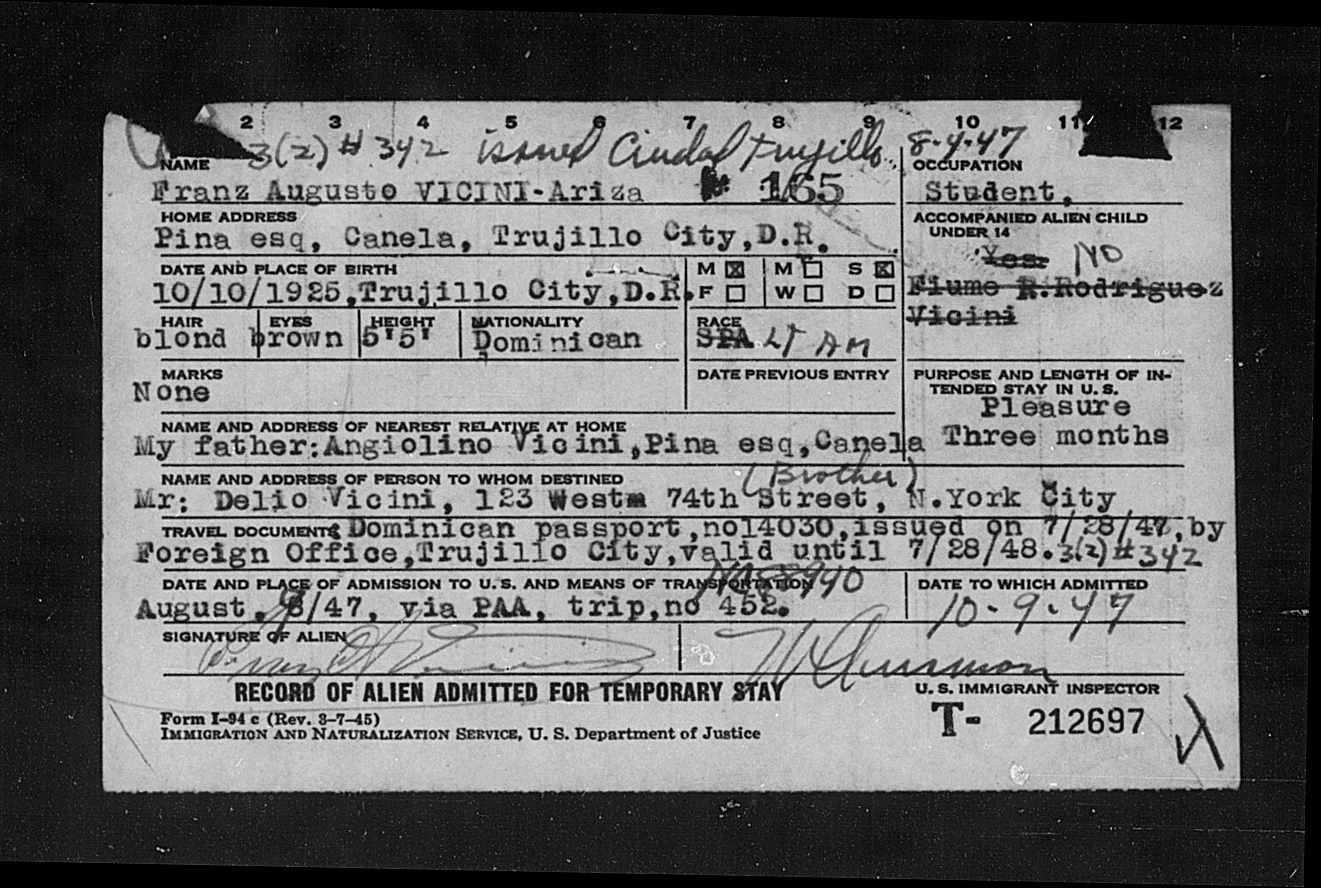 2 3 4 5 6 7 8 9 10 11 12
3(2) # 342 issued Ciudad Trujillo. 8-4-47
NAME
Franz Augusto VICINI-Ariza 165
OCCUPATION
Student,
HOME ADDRESS
Pina esq, Canela, Trujillo City,D.R.
ACCOMPANIED ALIEN CHILD
UNDER 14
Yes. NO
Fiume R.Rodriguez
Vicini
DATE AND PLACE OF BIRTH
10/10/1925,Trujillo City,D.R.
M ☒ M ☐ S ☒
F ☐ W ☐ D ☐
HAIR EYES HEIGHT NATIONALITY RACE
blond brown 5'5' Dominican SPA LT AM
MARKS
None
DATE PREVIOUS ENTRY
PURPOSE AND LENGTH OF IN-
TENDED STAY IN U. S.
Pleasure
Three months
NAME AND ADDRESS OF NEAREST RELATIVE AT HOME
My father:Angiolino Vicini,Pina esq,Canela
NAME AND ADDRESS OF PERSON TO WHOM DESTINED
(Brother)
Mr: Delio Vicini, 123 West 74th Street, N.York City
TRAVEL DOCUMENTS Dominican passport,no14030,issued on 7/28/47,by
Foreign Office,Trujillo City,valid until 7/28/48. 3(2) # 342
DATE AND PLACE OF ADMISSION TO U. S. AND MEANS OF TRANSPORTATION
August. 9/47, via PAA, trip,no 452.
DATE TO WHICH ADMITTED
10-9-47
SIGNATURE OF ALIEN
RECORD OF ALIEN ADMITTED FOR TEMPORARY STAY
U. S. IMMIGRANT INSPECTOR
Form I-94 c (Rev. 3-7-45)
IMMIGRATION AND NATURALIZATION SERVICE, U. S. Department of Justice
T- 212697